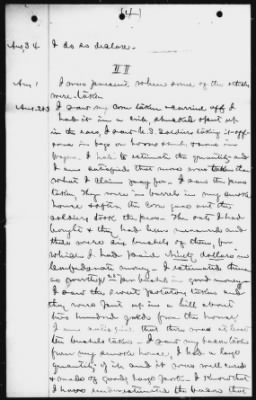 [4]
Ans 34 I do so declare.
II
Ans 1 I was present, when some of the articles
were taken
Ans 2&3 I saw my corn taken & carried off I
had it in a crib, shucked & put up
in the ears, I saw U.S. Soldiers taking it off
some in bags on horses and some in
wagons. I had to estimate the quantity and
I am satisfied that more was taken than
what I claim pay for. I saw the peas
taken they were in barrels in my smoke
house & after the corn gave out the
soldiers took the peas. The oats I had
bought & they had been measured and
there were six bushels of them, for
which I had paid Ninety dollars in
Confederate money. I estimated them
in good money
I saw the sweet potatoes taken, and
they were put up in a hill about
two hundred yards from the house,
I am satisfied that there was at least
ten bushels taken. I saw my bacon taken
from my smoke house, I had a large
quantity of it, and it was well cured
& made of good, large pork. I know that
I have underestimated the bacon that